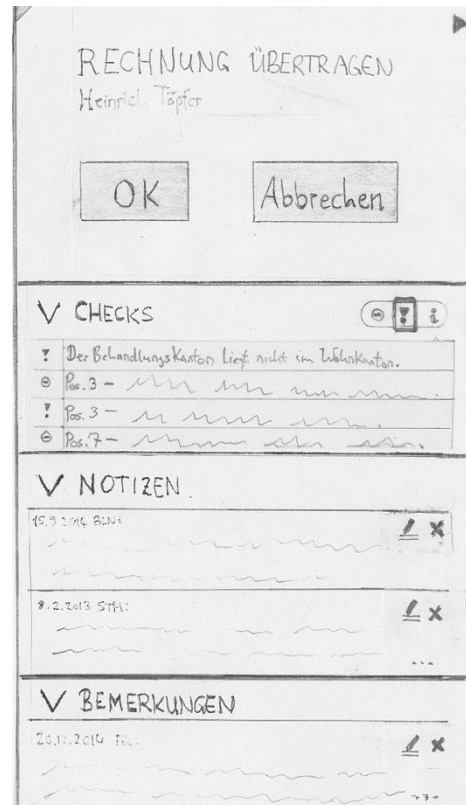 RECHNUNG ÜBERTRAGEN
Heinrich Töpfer
OK Abbrechen
V CHECKS ! i
! Der Behandlungskanton liegt nicht im Wohnkanton.
Pos. 3 –
! Pos. 3 –
Pos. 7 –
V NOTIZEN
15.9.2014
8.2.2013 STH:
...
V BEMERKUNGEN
2014